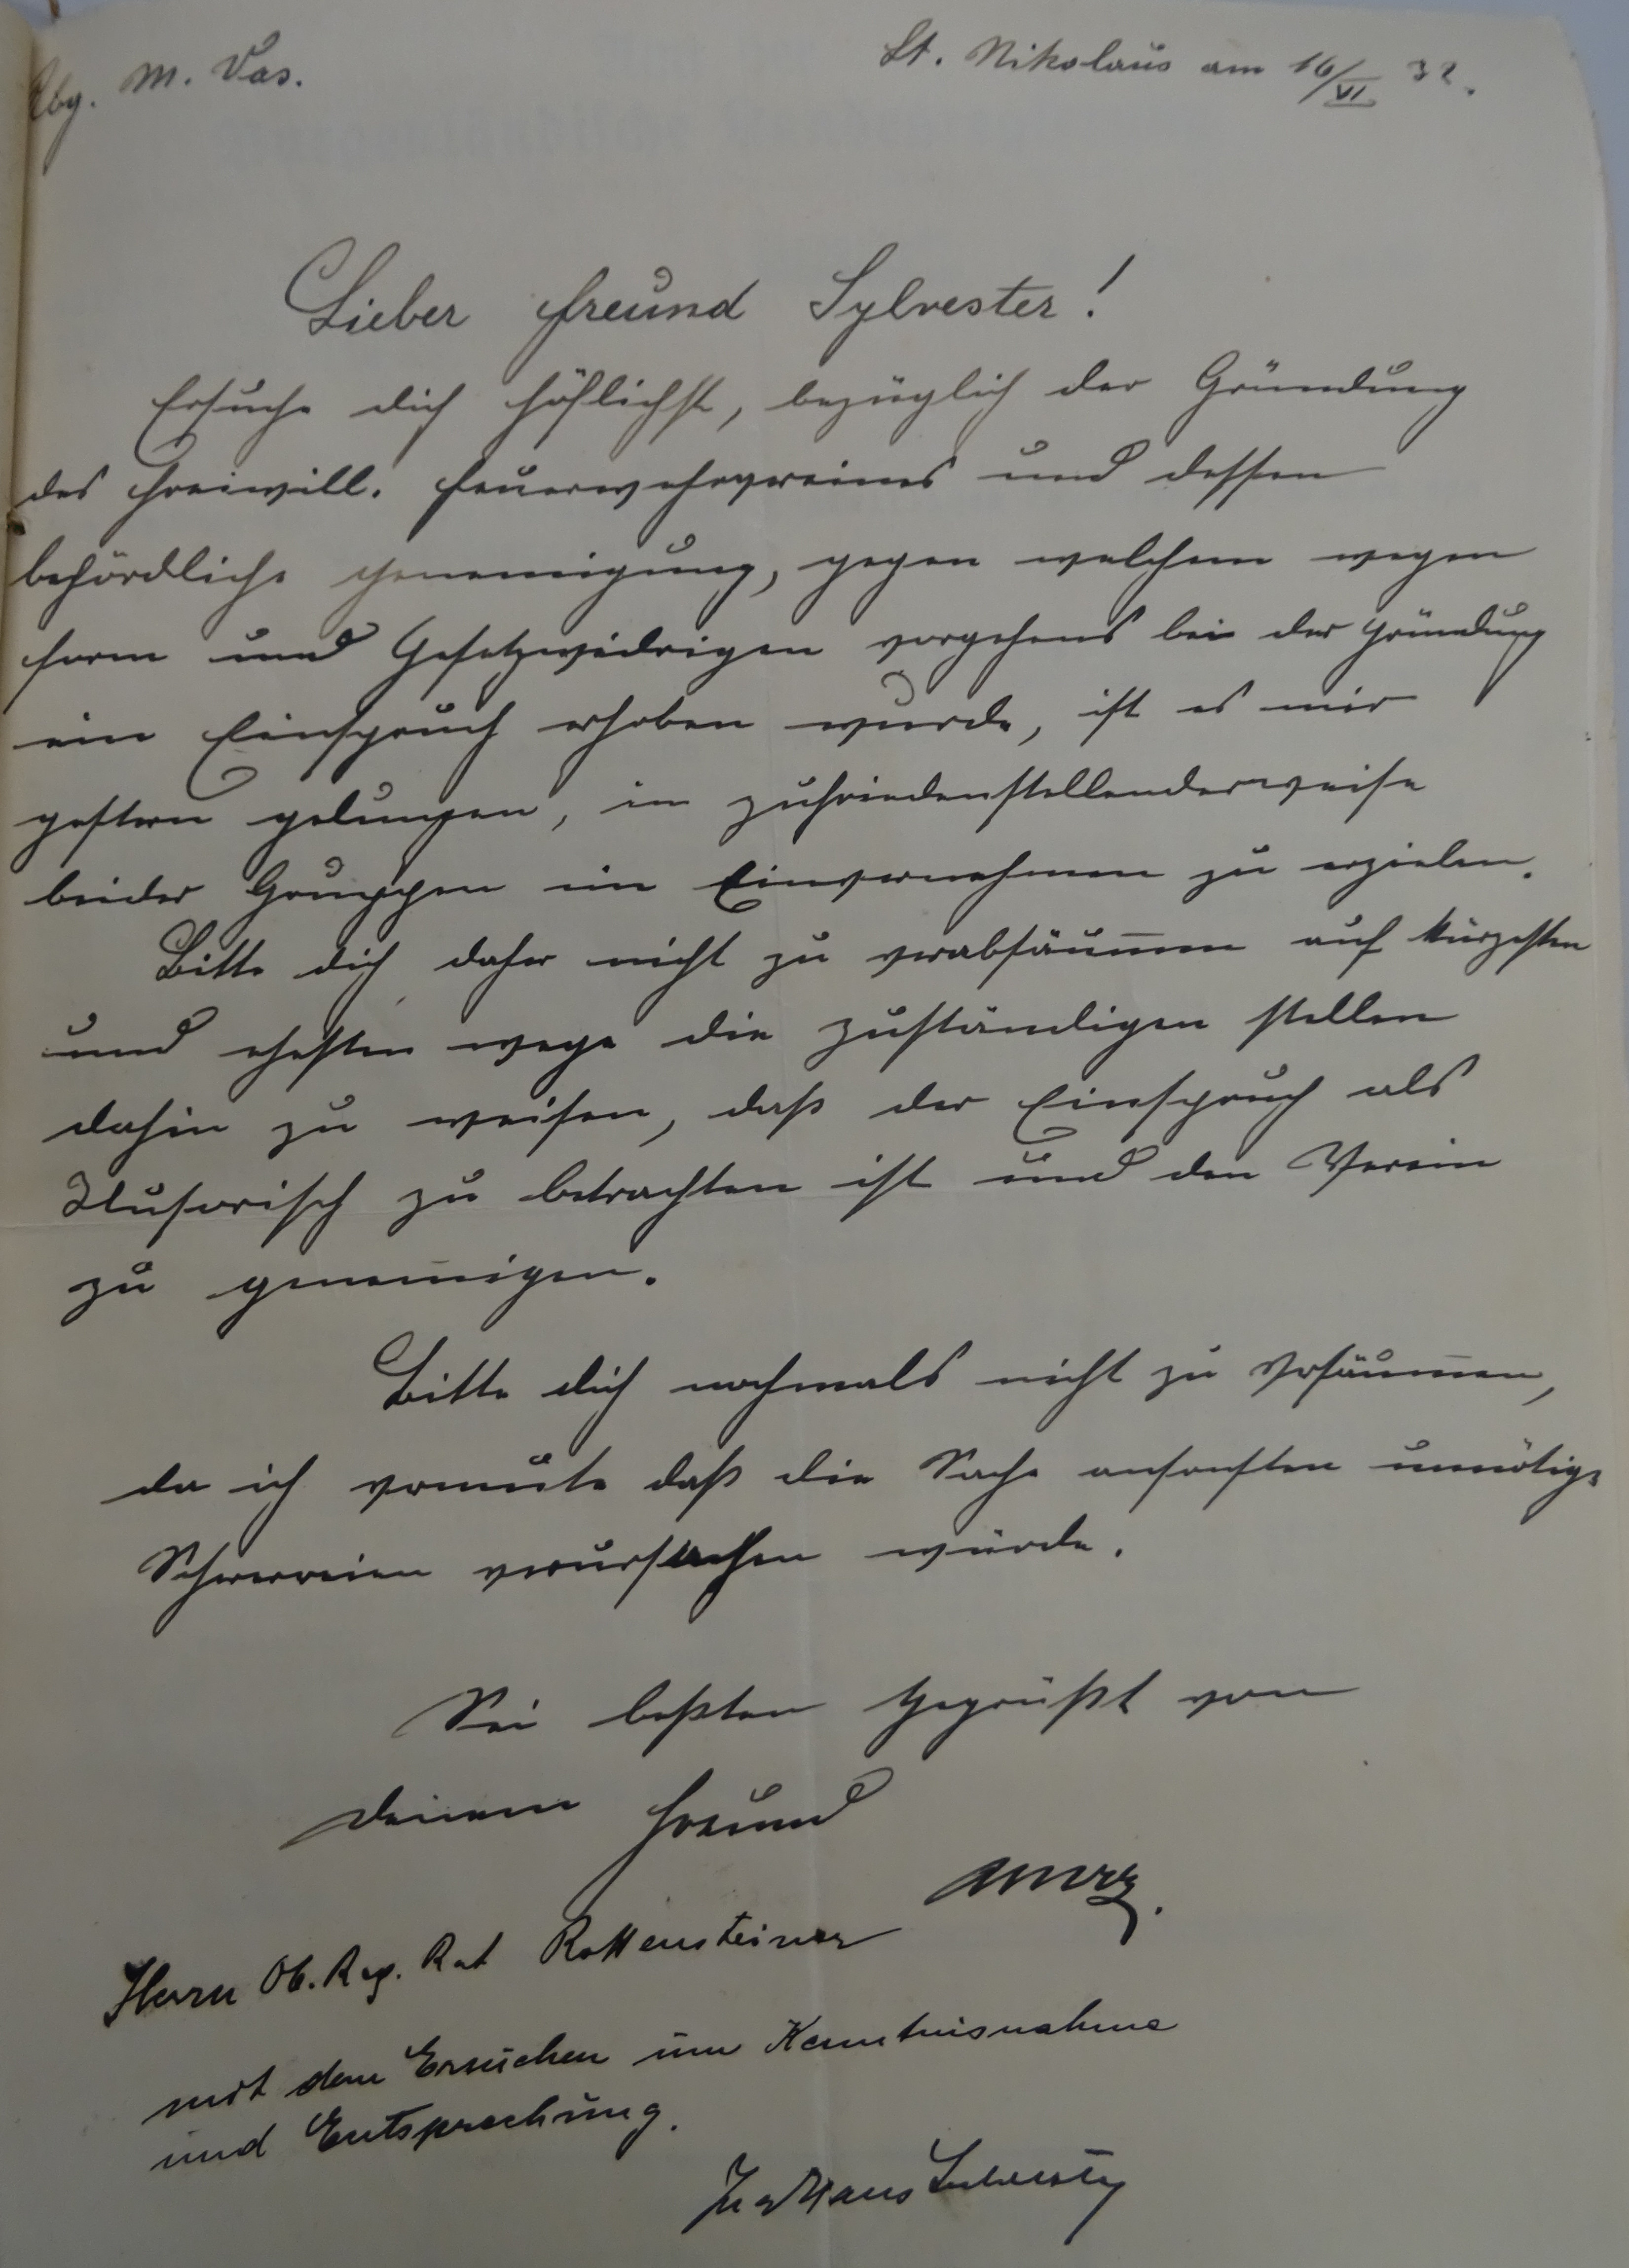 Abg. M. Vas.
St. Nikolaus am 16/VI 32.
Lieber Freund Sylvester!
Ersuche dich höflichst, bezüglich der Gründung
des Freiwill. Feuerwehrvereines und dessen
behördliche Genemigung, gegen welchem wegen
Form und Gesetzwidrigen vorgehens bei der Gründung
ein Einspruch erhoben wurde, ist es mir
gestern gelungen, in zufriedenstellenderweise
beider Gruppen ein Einvernehmen zu erzielen.
Bitte dich daher nicht zu verabsäumen auf kürzesten
und ehesten wege die zuständigen stellen
dahin zu weisen, daß der Einspruch als
Ilusorisch zu betrachten ist und den Verein
zu genemigen.
Bitte dich nochmals nicht zu versäumen,
da ich vermute daß die Sache ansonsten unnötige
Scherereien verursachen würde.
Sei beßten Gegrüßt von
deinem Freund
Herrn Ob. Reg. Rat Rottensteiner
mit dem Ersuchen um Kenntnisnahme
und Entsprechung.
Ing Hans Sylvester